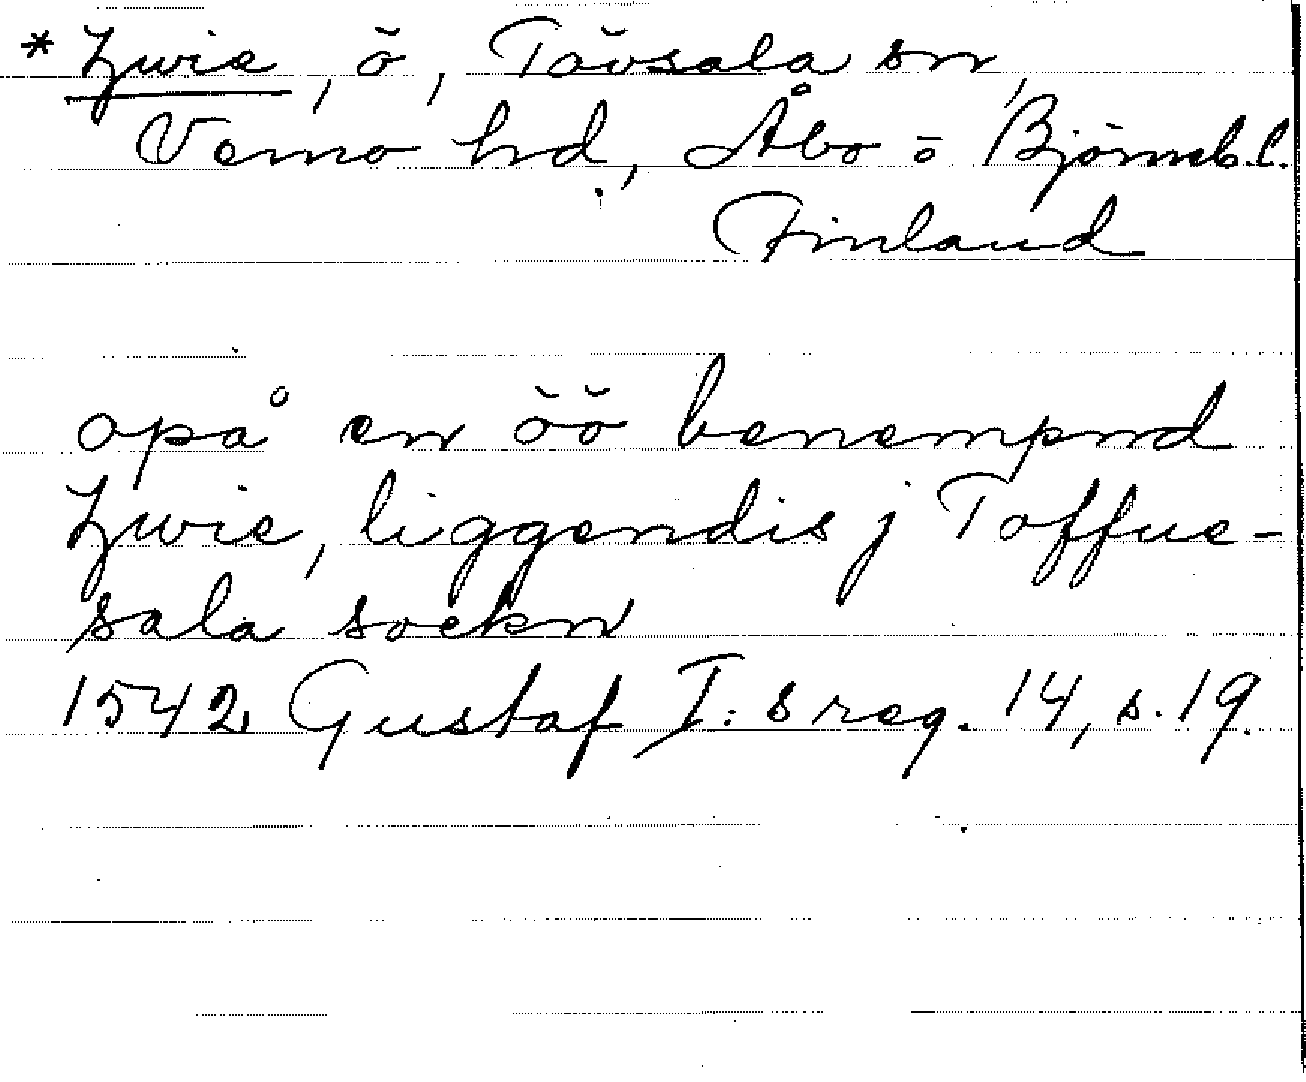 * Zwie, ö, Tövsala sn,
Vemo hd, Åbo o Björneb.l.
Finland
opå en öö benempnd
Zwie, liggendis j Toffue-
sala sockn
1542 Gustaf I:s reg. 14, s. 19.